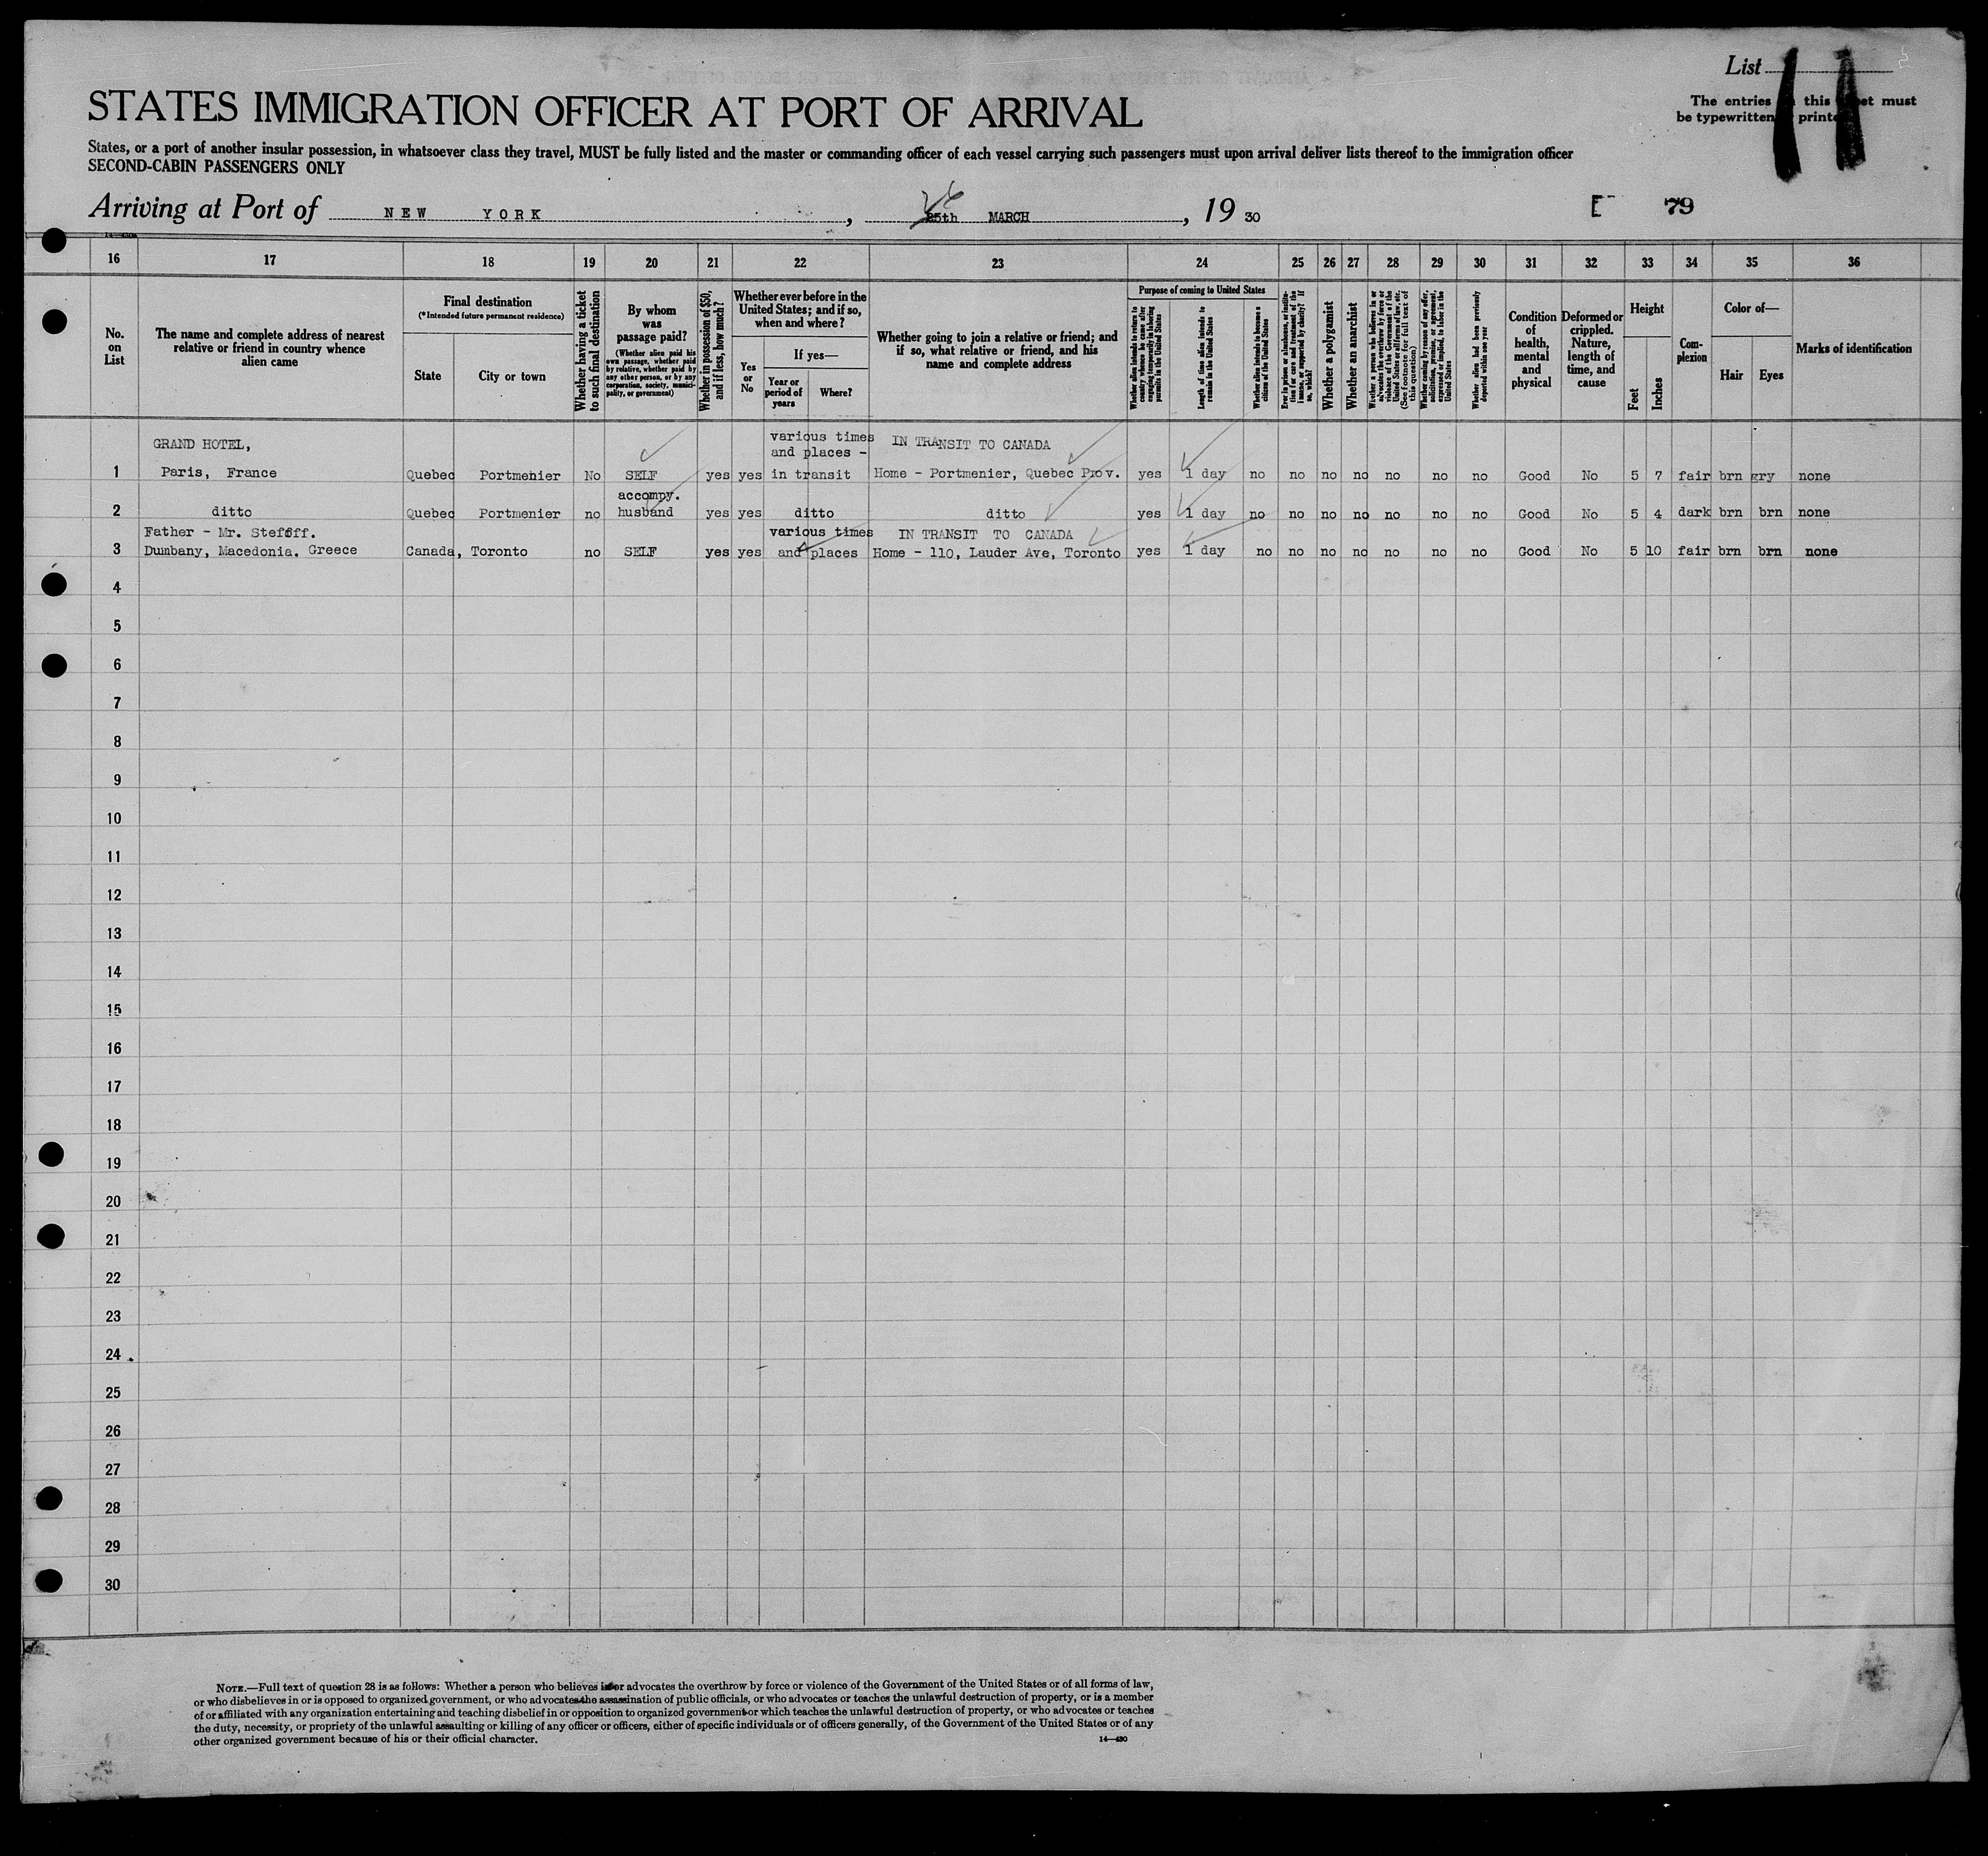 List 11
The entries this sheet must
be typewritten printed
STATES IMMIGRATION OFFICER AT PORT OF ARRIVAL
States, or a port of another insular possession, in whatsoever class they travel, MUST be fully listed and the master or commanding officer of each vessel carrying such passengers must upon arrival deliver lists thereof to the immigration officer
SECOND-CABIN PASSENGERS ONLY
Arriving at Port of NEW YORK, 26 25th MARCH, 19 30
E 79
16 17 18 19 20 21 22 23 24 25 26 27 28 29 30 31 32 33 34 35 36
No. on List
The name and complete address of nearest relative or friend in country whence alien came
Final destination
(*Intended future permanent residence)
State
City or town
Whether having a ticket to such final destination
By whom was passage paid?
(Whether alien paid his own passage, whether paid by relative, whether paid by any other person, or by any corporation, society, municipality, or government)
Whether in possession of $50, and if less, how much?
Whether ever before in the United States; and if so, when and where?
Yes or No
If yes—
Year or period of years
Where?
Whether going to join a relative or friend; and if so, what relative or friend, and his name and complete address
Purpose of coming to United States
Whether alien intends to return to country whence he came after engaging temporarily in laboring pursuits in the United States
Length of time alien intends to remain in the United States
Whether alien intends to become a citizen of the United States
Ever in prison or almshouse, or institution for care and treatment of the insane, or supported by charity? If so, which?
Whether a polygamist
Whether an anarchist
Whether a person who believes in or advocates the overthrow by force or violence of the Government of the United States or all forms of law, etc. (See footnote for full text of this question)
Whether coming by reason of any offer, solicitation, promise, or agreement, expressed or implied, to labor in the United States
Whether alien had been previously deported within one year
Condition of health, mental and physical
Deformed or crippled. Nature, length of time, and cause
Height
Feet
Inches
Complexion
Color of—
Hair
Eyes
Marks of identification
GRAND HOTEL, various times IN TRANSIT TO CANADA
and places -
1 Paris, France Quebec Portmenier No SELF yes yes in transit Home - Portmenier, Quebec Prov. yes 1 day no no no no no no no Good No 5 7 fair brn gry none
accompy.
2 ditto Quebec Portmenier no husband yes yes ditto ditto yes 1 day no no no no no no no Good No 5 4 dark brn brn none
Father - Mr. Steffoff. various times IN TRANSIT TO CANADA
3 Dumbany, Macedonia. Greece Canada, Toronto no SELF yes yes and places Home - 110, Lauder Ave, Toronto yes 1 day no no no no no no no Good No 5 10 fair brn brn none
4
5
6
7
8
9
10
11
12
13
14
15
16
17
18
19
20
21
22
23
24
25
26
27
28
29
30
NOTE.—Full text of question 28 is as follows: Whether a person who believes in or advocates the overthrow by force or violence of the Government of the United States or of all forms of law,
or who disbelieves in or is opposed to organized government, or who advocates the assassination of public officials, or who advocates or teaches the unlawful destruction of property, or is a member
of or affiliated with any organization entertaining and teaching disbelief in or opposition to organized government or which teaches the unlawful destruction of property, or who advocates or teaches
the duty, necessity, or propriety of the unlawful assaulting or killing of any officer or officers, either of specific individuals or of officers generally, of the Government of the United States or of any
other organized government because of his or their official character.
14—430